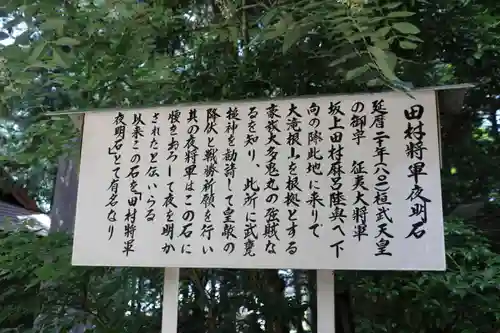 田村将軍夜明石
延暦二十年(八〇一)桓武天皇
の御宇 征夷大将軍
坂上田村麻呂陸奥へ下
向の際此地に来りて
大滝根山を根拠とする
豪族大多鬼丸の強賊な
るを知り、此所に武甕
槌神を勧請して皇敵の
降伏と戦勝祈願を行い
其の夜将軍はこの石に
腰をおろして夜を明か
されたと伝いらる
以来この石を田村将軍
夜明石」とて有名なり